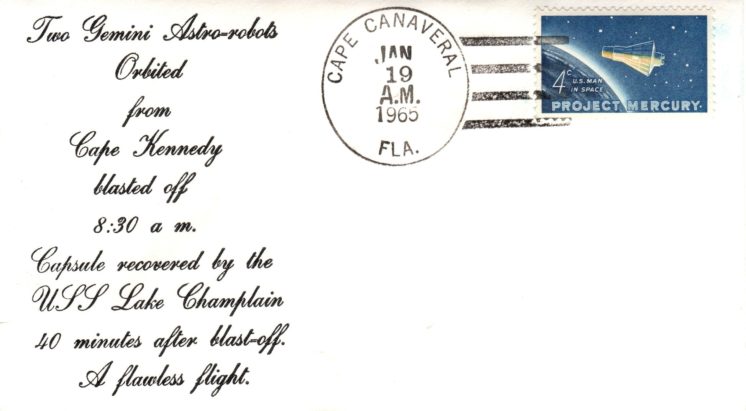 Two Gemini Astro-robots
Orbited
from
Cape Kennedy
blasted off
8:30 a m.
Capsule recovered by the
USS Lake Champlain
40 minutes after blast-off.
A flawless flight.
CAPE CANAVERAL
JAN
19
A.M.
1965
FLA.
4c
U.S. MAN
IN SPACE
PROJECT MERCURY